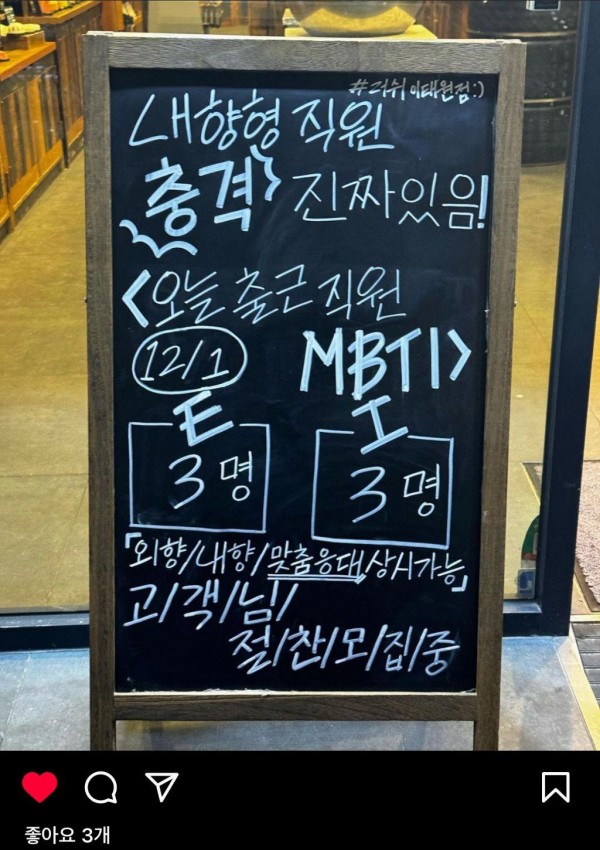 #러쉬 이태원점:)
내향형 직원
충격 진짜있음!
<오늘 출근 직원
12/1 MBTI>
E I
3명 3명
「외향/내향/맞춤응대 상시가능」
고/객/님/
절/찬/모/집/중
좋아요 3개